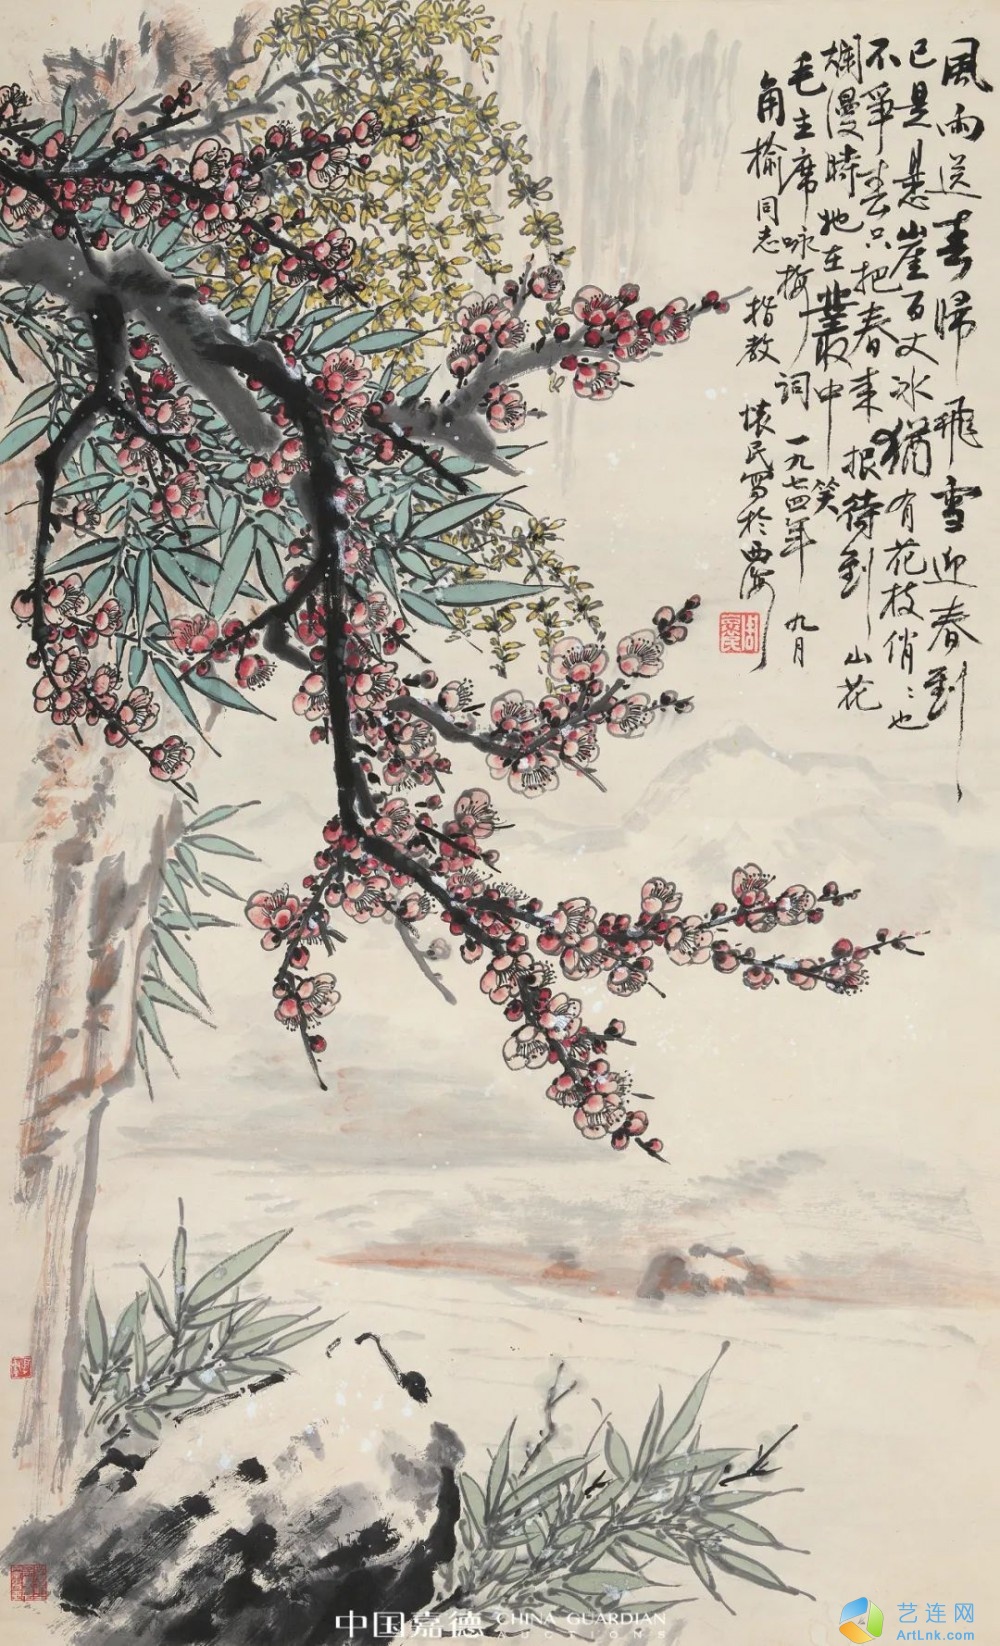 風雨送春歸飛雪迎春到
已是悬崖百丈冰猶有花枝俏〻也
不爭春只把春来报待到山花
爛漫時她在叢中笑
毛主席咏梅詞 一九七四年九月
角榆同志指教 懷民写於西海
中国嘉德 CHINA GUARDIAN
AUCTIONS
艺连网
ArtLnk.com